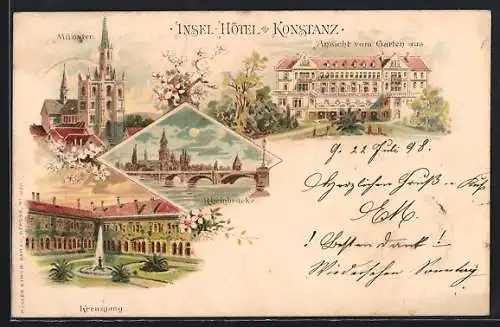 INSEL-HÔTEL KONSTANZ.
Münster
Ansicht vom Garten aus
Rheinbrücke
Kreuzgang
22 Juli 98.
Herzlichen Gruß u. Kuss
! Besten Dank !
Wiedersehen Sonntag